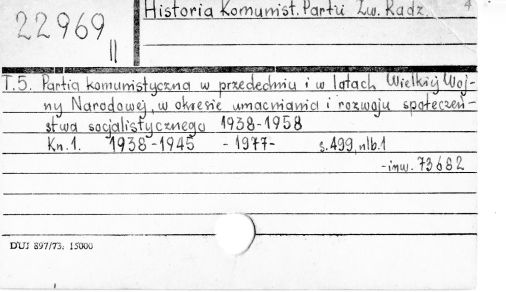 Historia Komunist. Partii Zw. Radz. 4
22969
II
T.5. Partia komunistyczna w przededniu i w latach Wielkiej Woj-
ny Narodowej, w okresie umacniania i rozwoju społeczeń-
stwa socjalistycznego 1938-1958
Kn.1. 1938-1945 - 1977- s.499, nlb.1
-inw. 73682
DUJ 897/73: 15000